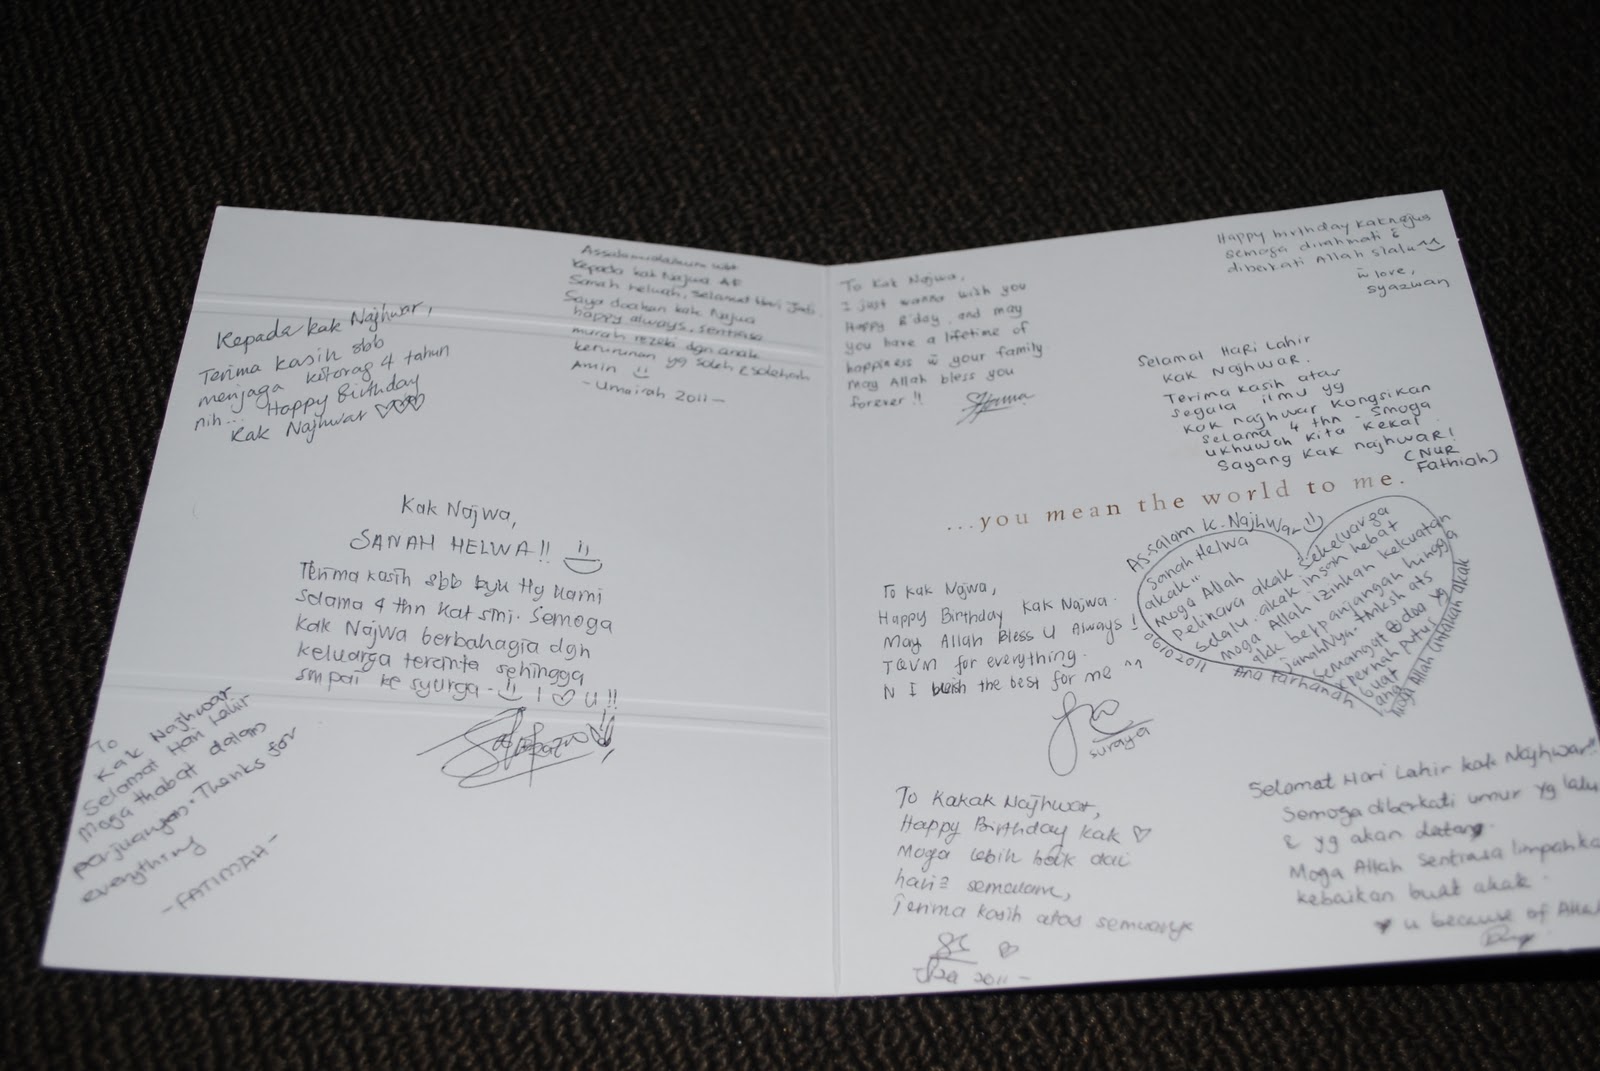 Kepada kak Najhwar,
Terima kasih sbb
menjaga kitorag 4 tahun
nih... Happy Birthday
Kak Najhwar ♡♡♡
Assalamualaikum wbt
Kepada kak Najwa AF
Sanah helwah, Selamat Hari Jadi
Saya doakan kak Najwa
happy always, sentiasa
murah rezeki dgn anak
keturunan yg soleh & solehah
Amin
-Umairah 2011-
Kak Najwa,
SANAH HELWA!!
Terima kasih sbb byk
selama 4 thn kat sini. Semoga
kak Najwa berbahagia dgn
keluarga tercinta sehingga
smpai ke syurga- I ♡ U!!
To
Kak Najhwar
Selamat Hari Lahir
Moga thabat dalam
perjuangan. Thanks for
everything
-FATIMAH-
To Kak Najwa,
I just wanna wish you
Happy B'day and may
you have a lifetime of
happiness w your family
may Allah bless you
forever!!
Happy birthday kak najwa
semoga dirahmati &
diberkati Allah slalu^^
w love,
syazwan
Selamat Hari Lahir
Kak Najhwar.
Terima kasih atas
segala ilmu yg
kak najhwar kongsikan
selama 4 thn. Smoga
ukhuwah kita kekal.
Sayang kak najhwar!
(NUR
Fathiah)
...you mean the world to me.
As-salam K. Najhwar
Sanah Helwa
akak"
Moga Allah
Pelihara akak sekeluarga
selalu. akak insan hebat
moga Allah izinkan kekuatan
akk berpanjangan hingga
jannahNya. tmksh ats
semangat & doa yg
x pernah putus
buat
ana
moga Allah
akak
06102011
Ana Farhanah
To Kak Najwa,
Happy Birthday Kak Najwa.
May Allah Bless U Always!
TQVM for everything.
N I wish the best for me ^^
suraya
To Kakak Najhwar,
Happy Birthday kak ♡
Moga lebih baik dari
hari2 semalam,
Terima kasih atas semuanya
2011-
Selamat Hari Lahir kak Najhwar!!
Semoga diberkati umur yg lalu
& yg akan datang.
Moga Allah sentiasa limpahka
kebaikan buat akak.
♥ u because of Allah